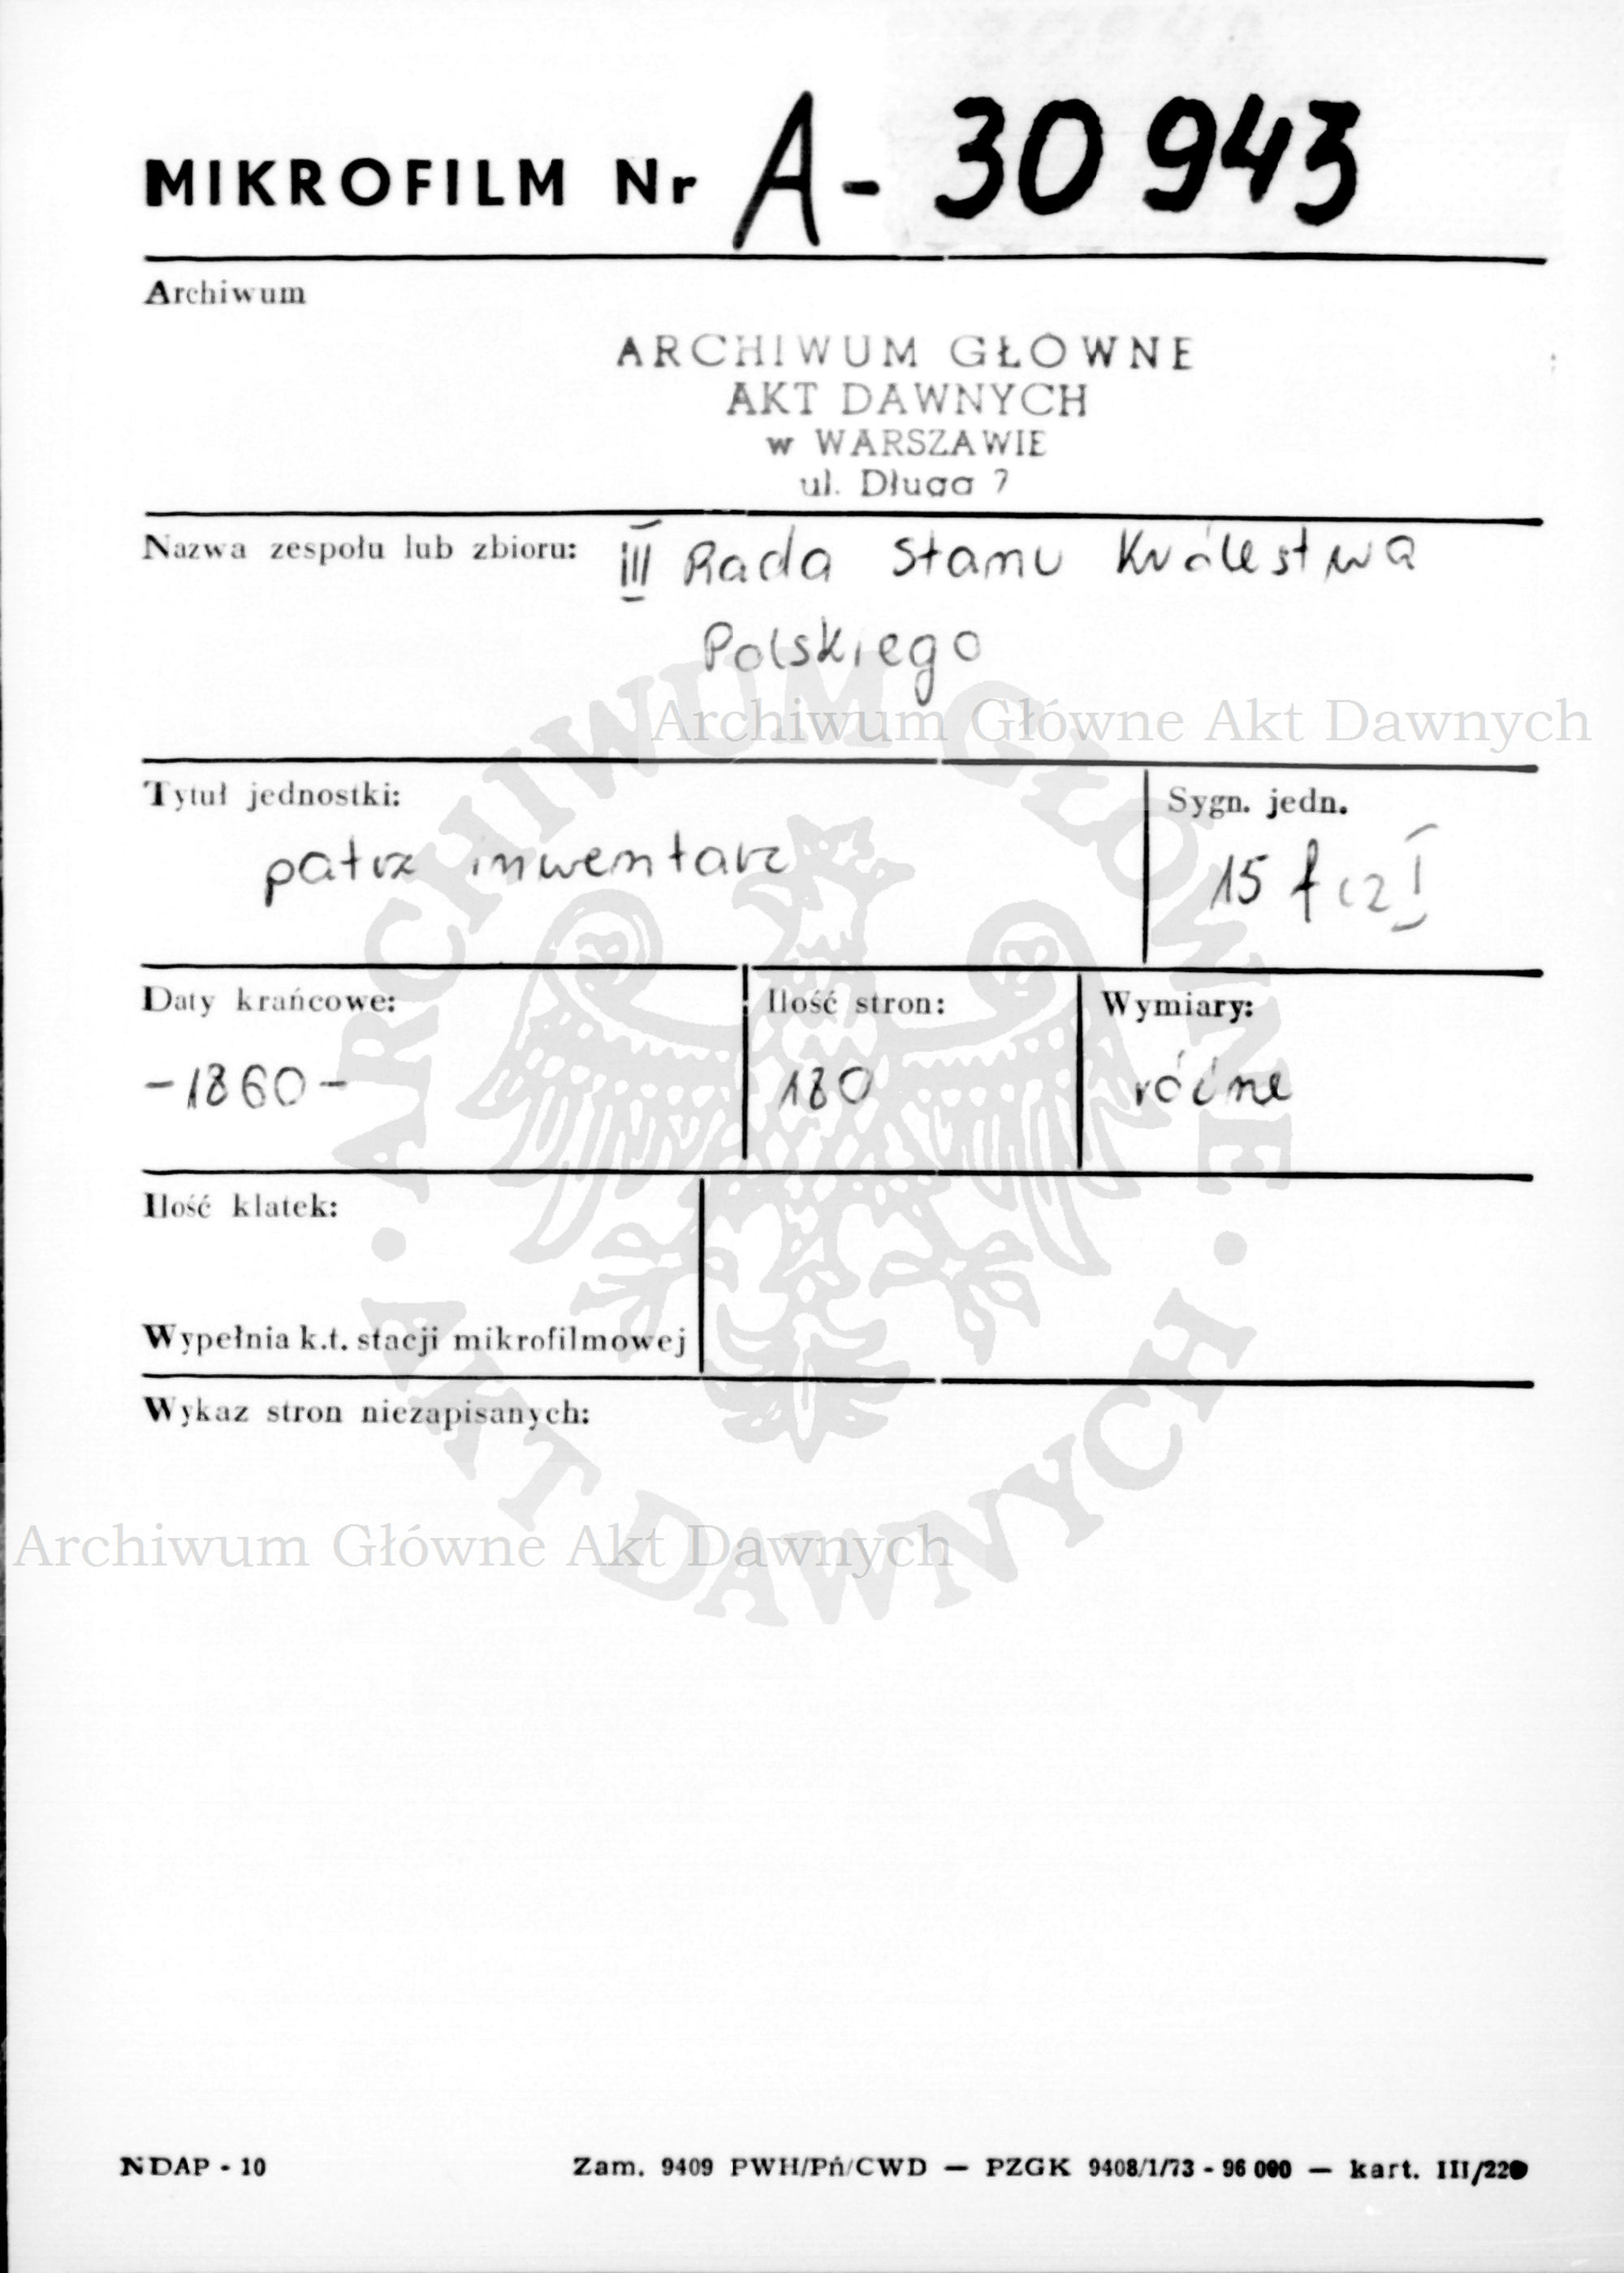 MIKROFILM Nr A- 30 943
Archiwum
ARCHIWUM GŁÓWNE
AKT DAWNYCH
w WARSZAWIE
ul. Długa 7
Nazwa zespołu lub zbioru: III Rada Stanu Królestwa
Polskiego
Archiwum Główne Akt Dawnych
Tytuł jednostki:
patrz inwentarz
Sygn. jedn.
15 f cz I
Daty krańcowe:
-1860-
Ilość stron:
180
Wymiary:
różne
Ilość klatek:
Wypełnia k.t. stacji mikrofilmowej
Wykaz stron niezapisanych:
ARCHIWUM GŁÓWNE
· AKT DAWNYCH ·
Archiwum Główne Akt Dawnych
NDAP - 10
Zam. 9409 PWH/Pń/CWD — PZGK 9408/1/73 - 96 000 — kart. III/220